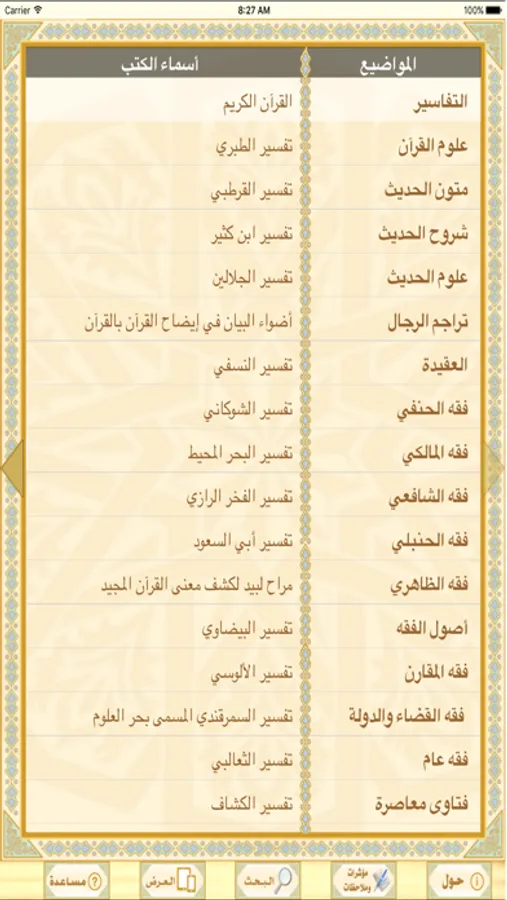 Carrier 8:27 AM 100%
المواضيع أسماء الكتب
التفاسير القرآن الكريم
علوم القرآن تفسير الطبري
متون الحديث تفسير القرطبي
شروح الحديث تفسير ابن كثير
علوم الحديث تفسير الجلالين
تراجم الرجال أضواء البيان في إيضاح القرآن بالقرآن
العقيدة تفسير النسفي
فقه الحنفي تفسير الشوكاني
فقه المالكي تفسير البحر المحيط
فقه الشافعي تفسير الفخر الرازي
فقه الحنبلي تفسير أبي السعود
فقه الظاهري مراح لبيد لكشف معنى القرآن المجيد
أصول الفقه تفسير البيضاوي
فقه المقارن تفسير الألوسي
فقه القضاء والدولة تفسير السمرقندي المسمى بحر العلوم
فقه عام تفسير الثعالبي
فتاوى معاصرة تفسير الكشاف
حول مؤشرات وملاحظات البحث العرض مساعدة